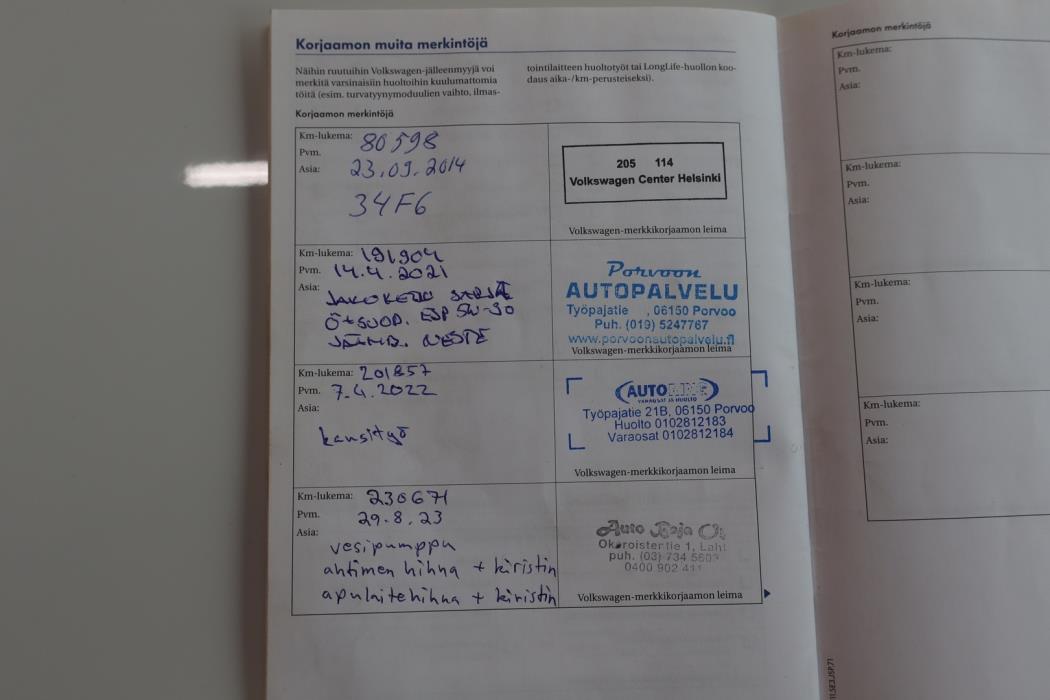 Korjaamon muita merkintöjä
Näihin ruutuihin Volkswagen-jälleenmyyjä voi
merkitä varsinaisiin huoltoihin kuulumattomia
töitä (esim. turvatyynymoduulien vaihto, ilmas-
tointilaitteen huoltotyöt tai LongLife-huollon koo-
daus aika-/km-perusteiseksi).
Korjaamon merkintöjä
Km-lukema: 80598
Pvm. 23.09.2014
Asia: 34F6
205 114
Volkswagen Center Helsinki
Volkswagen-merkkikorjaamon leima
Km-lukema: 191904
Pvm. 14.4.2021
Asia: JAKOKETJU SARJA
Ö+SUOD. ESP 5W-30
JÄÄHD. NESTE
Porvoon
AUTOPALVELU
Työpajatie , 06150 Porvoo
Puh. (019) 5247767
www.porvoonautopalvelu.fi
Volkswagen-merkkikorjaamon leima
Km-lukema: 201857
Pvm. 7.4.2022
Asia: kansityö
AUTO
VARAOSAT JA HUOLTO
Työpajatie 21B, 06150 Porvoo
Huolto 0102812183
Varaosat 0102812184
Volkswagen-merkkikorjaamon leima
Km-lukema: 230671
Pvm. 29.8.23
Asia: vesipumppu
ahtimen hihna + kiristin
apulaitehihna + kiristin
Auto
1, Laht
puh. (03) 734 5603
0400 902
Volkswagen-merkkikorjaamon leima
Korjaamon merkintöjä
Km-lukema:
Pvm.
Asia:
Km-lukema:
Pvm.
Asia:
Km-lukema:
Pvm.
Asia:
Km-lukema:
Pvm.
Asia: